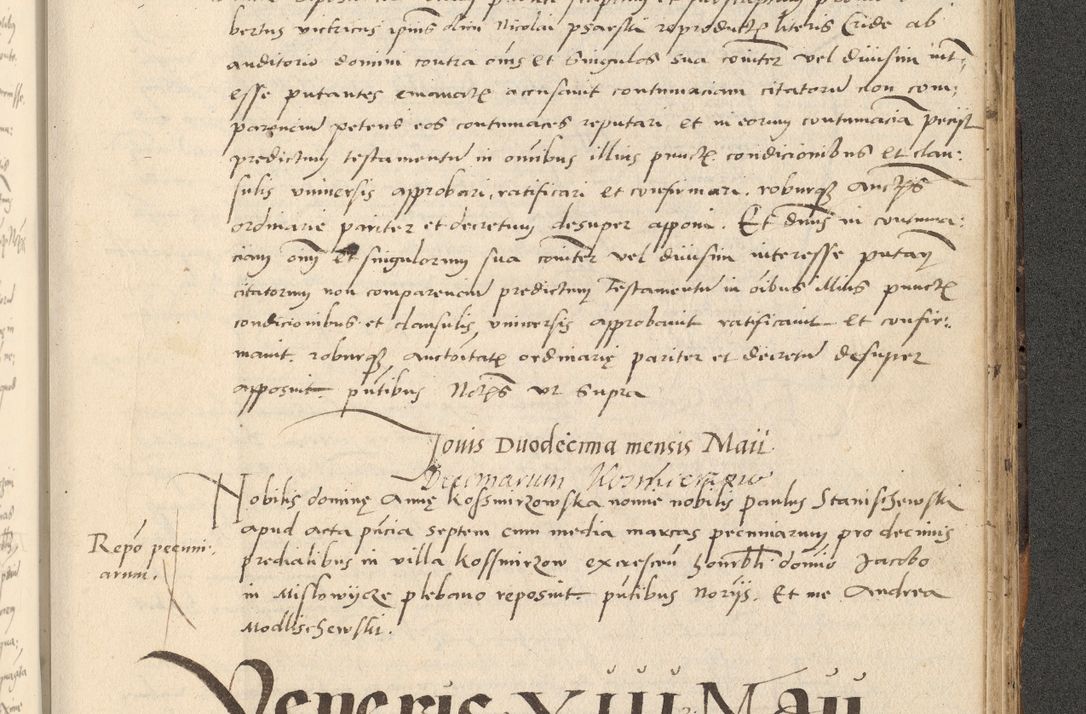 bertus victricus ipius olim Nicolai psarski reproductis literis Cride ab
auditorio domini contra oms et singulos sua coniter vel diuisim int-
esse putantes emanatis accusauit contumaciam citatorum non com:
parencium petens eos contumaces reputari et in eorum contumacia peciit
predictum testamentum in omibus illius punctis condicionibus et clau:
sulis vniuersis approbari, ratificari et confirmari, roburque auctis
ordinarie pariter et decretum desuper apponi. Et dnus in contuma:
ciam oim et singulorum sua coniter vel diuisim interesse putan
citatorum non comparencium predictum Testamentum in oibus illius punctis
condicionibus et clausulis vniuersis approbauit ratificauit et confir:
mauit, roburque auctoitatis ordinarię pariter et decretum desuper
apposuit pntibus Notis vt supra
Jouis Duodecima mensis Maii
Decimarum Kosmierzow
Nobilis dominę Annę Kossmirzowska nomine nobilis Paulus Stanischewski
apud acta pncia septem cum media marcas pecuniarum pro decimis
predialibus in villa Kossmirzow excrescen honorbli domino Jacobo
in Mislowycze plebano reposuit. pntibus Norijs. Et me Andrea
Modlischewski.
Repo pecuni:
arum.
Veneris XIIII Maii